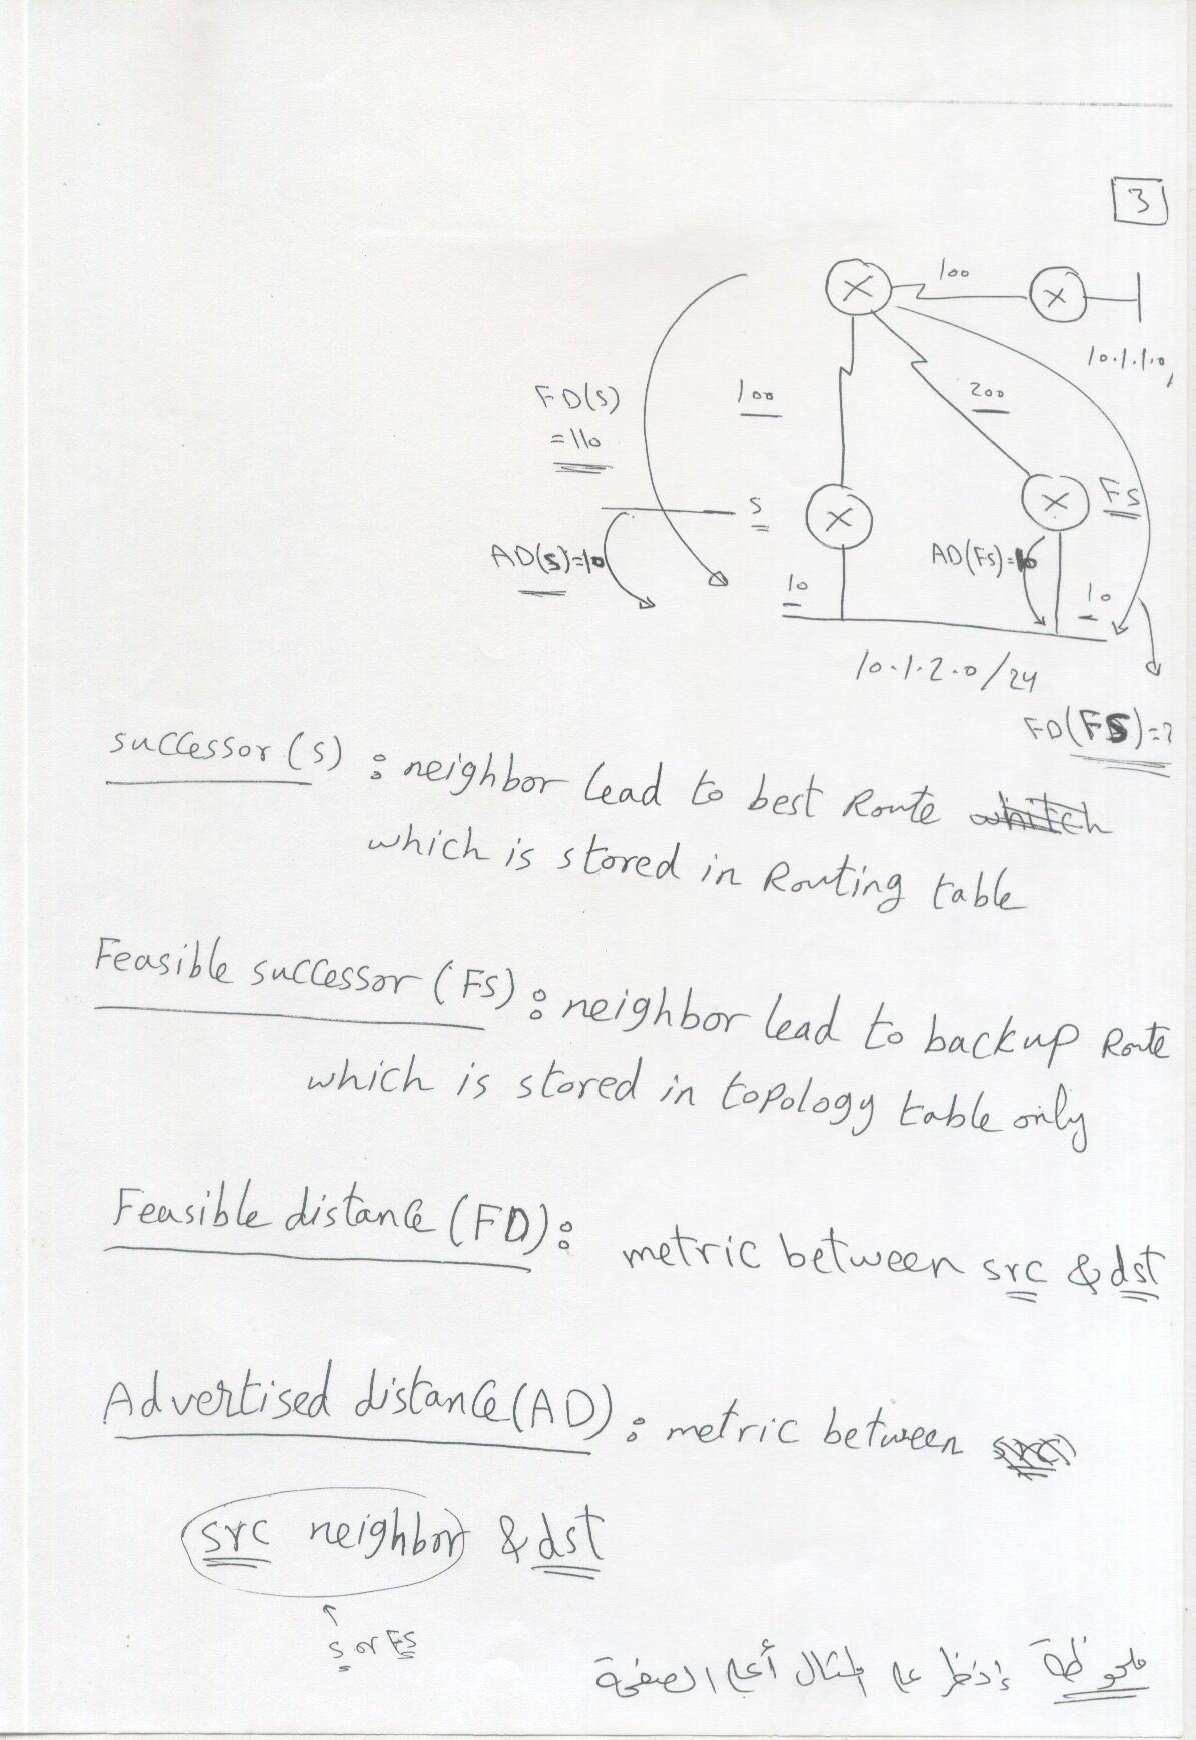 3
100
10.1.1.0
FD(S)
=110
100
200
S
FS
AD(S)=10
AD(FS)=10
10
10
10.1.2.0/24
FD(FS)=?
successor (S) : neighbor lead to best Route
which is stored in Routing table
Feasible successor (FS) : neighbor lead to backup Route
which is stored in topology table only
Feasible distance (FD) : metric between src & dst
Advertised distance (AD) : metric between
src neighbor & dst
S or FS
ملحوظة إنظر على المثال أعلى الصفحة